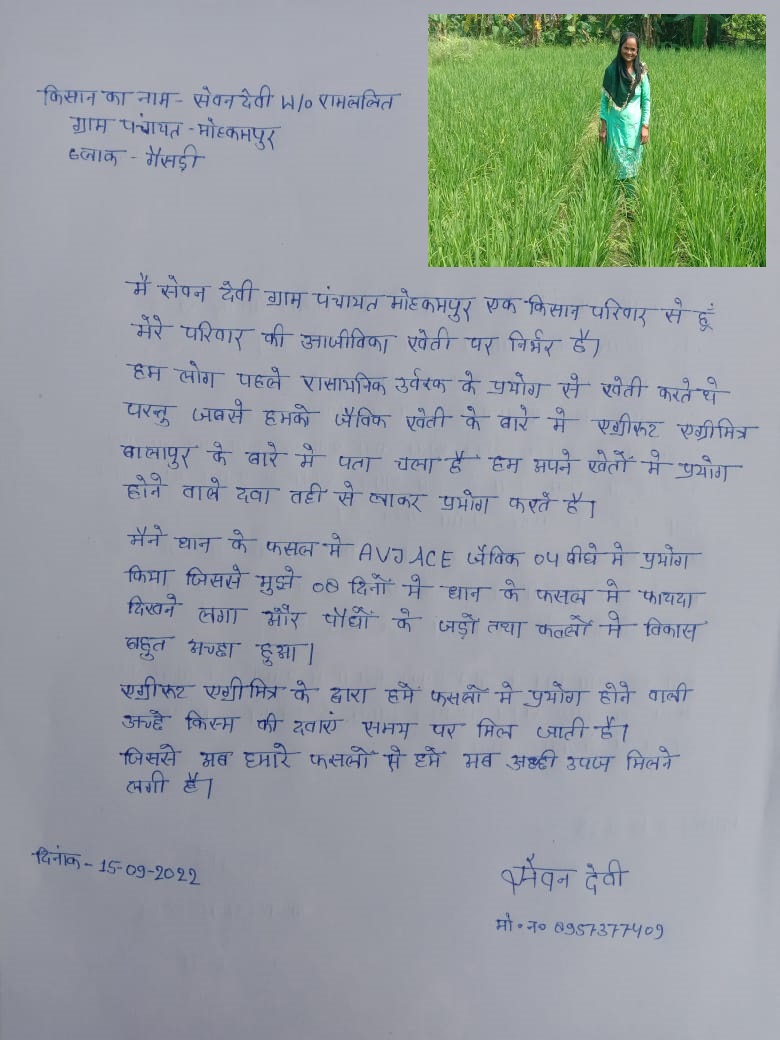 किसान का नाम - सेवन देवी W/o रामललित
ग्राम पंचायत - मोहकमपुर
ब्लाक - गैसड़ी
मै सेवन देवी ग्राम पंचायत मोहकमपुर एक किसान परिवार से हूँ
मेरे परिवार की आजीविका खेती पर निर्भर है।
हम लोग पहले रासायनिक उर्वरक के प्रयोग से खेती करते थे
परन्तु जबसे हमको जैविक खेती के बारे मे एग्रीरूट एग्रीमित्र
बालापुर के बारे मे पता चला है हम अपने खेतों मे प्रयोग
होने वाले दवा वही से लाकर प्रयोग करते है।
मैने धान के फसल मे AVJ ACE जैविक 04 बीघे मे प्रयोग
किया जिससे मुझे 08 दिनों मे धान के फसल मे फायदा
दिखने लगा और पौधों के जड़ो तथा कल्लों मे विकास
बहुत अच्छा हुआ।
एग्रीरूट एग्रीमित्र के द्वारा हमे फसलों मे प्रयोग होने वाली
अच्छे किस्म की दवाएं समय पर मिल जाती है।
जिससे अब हमारे फसलों से हमें अब अच्छी उपज मिलने
लगी है।
दिनांक - 15-09-2022
सेवन देवी
मो॰ न॰ 8957377409